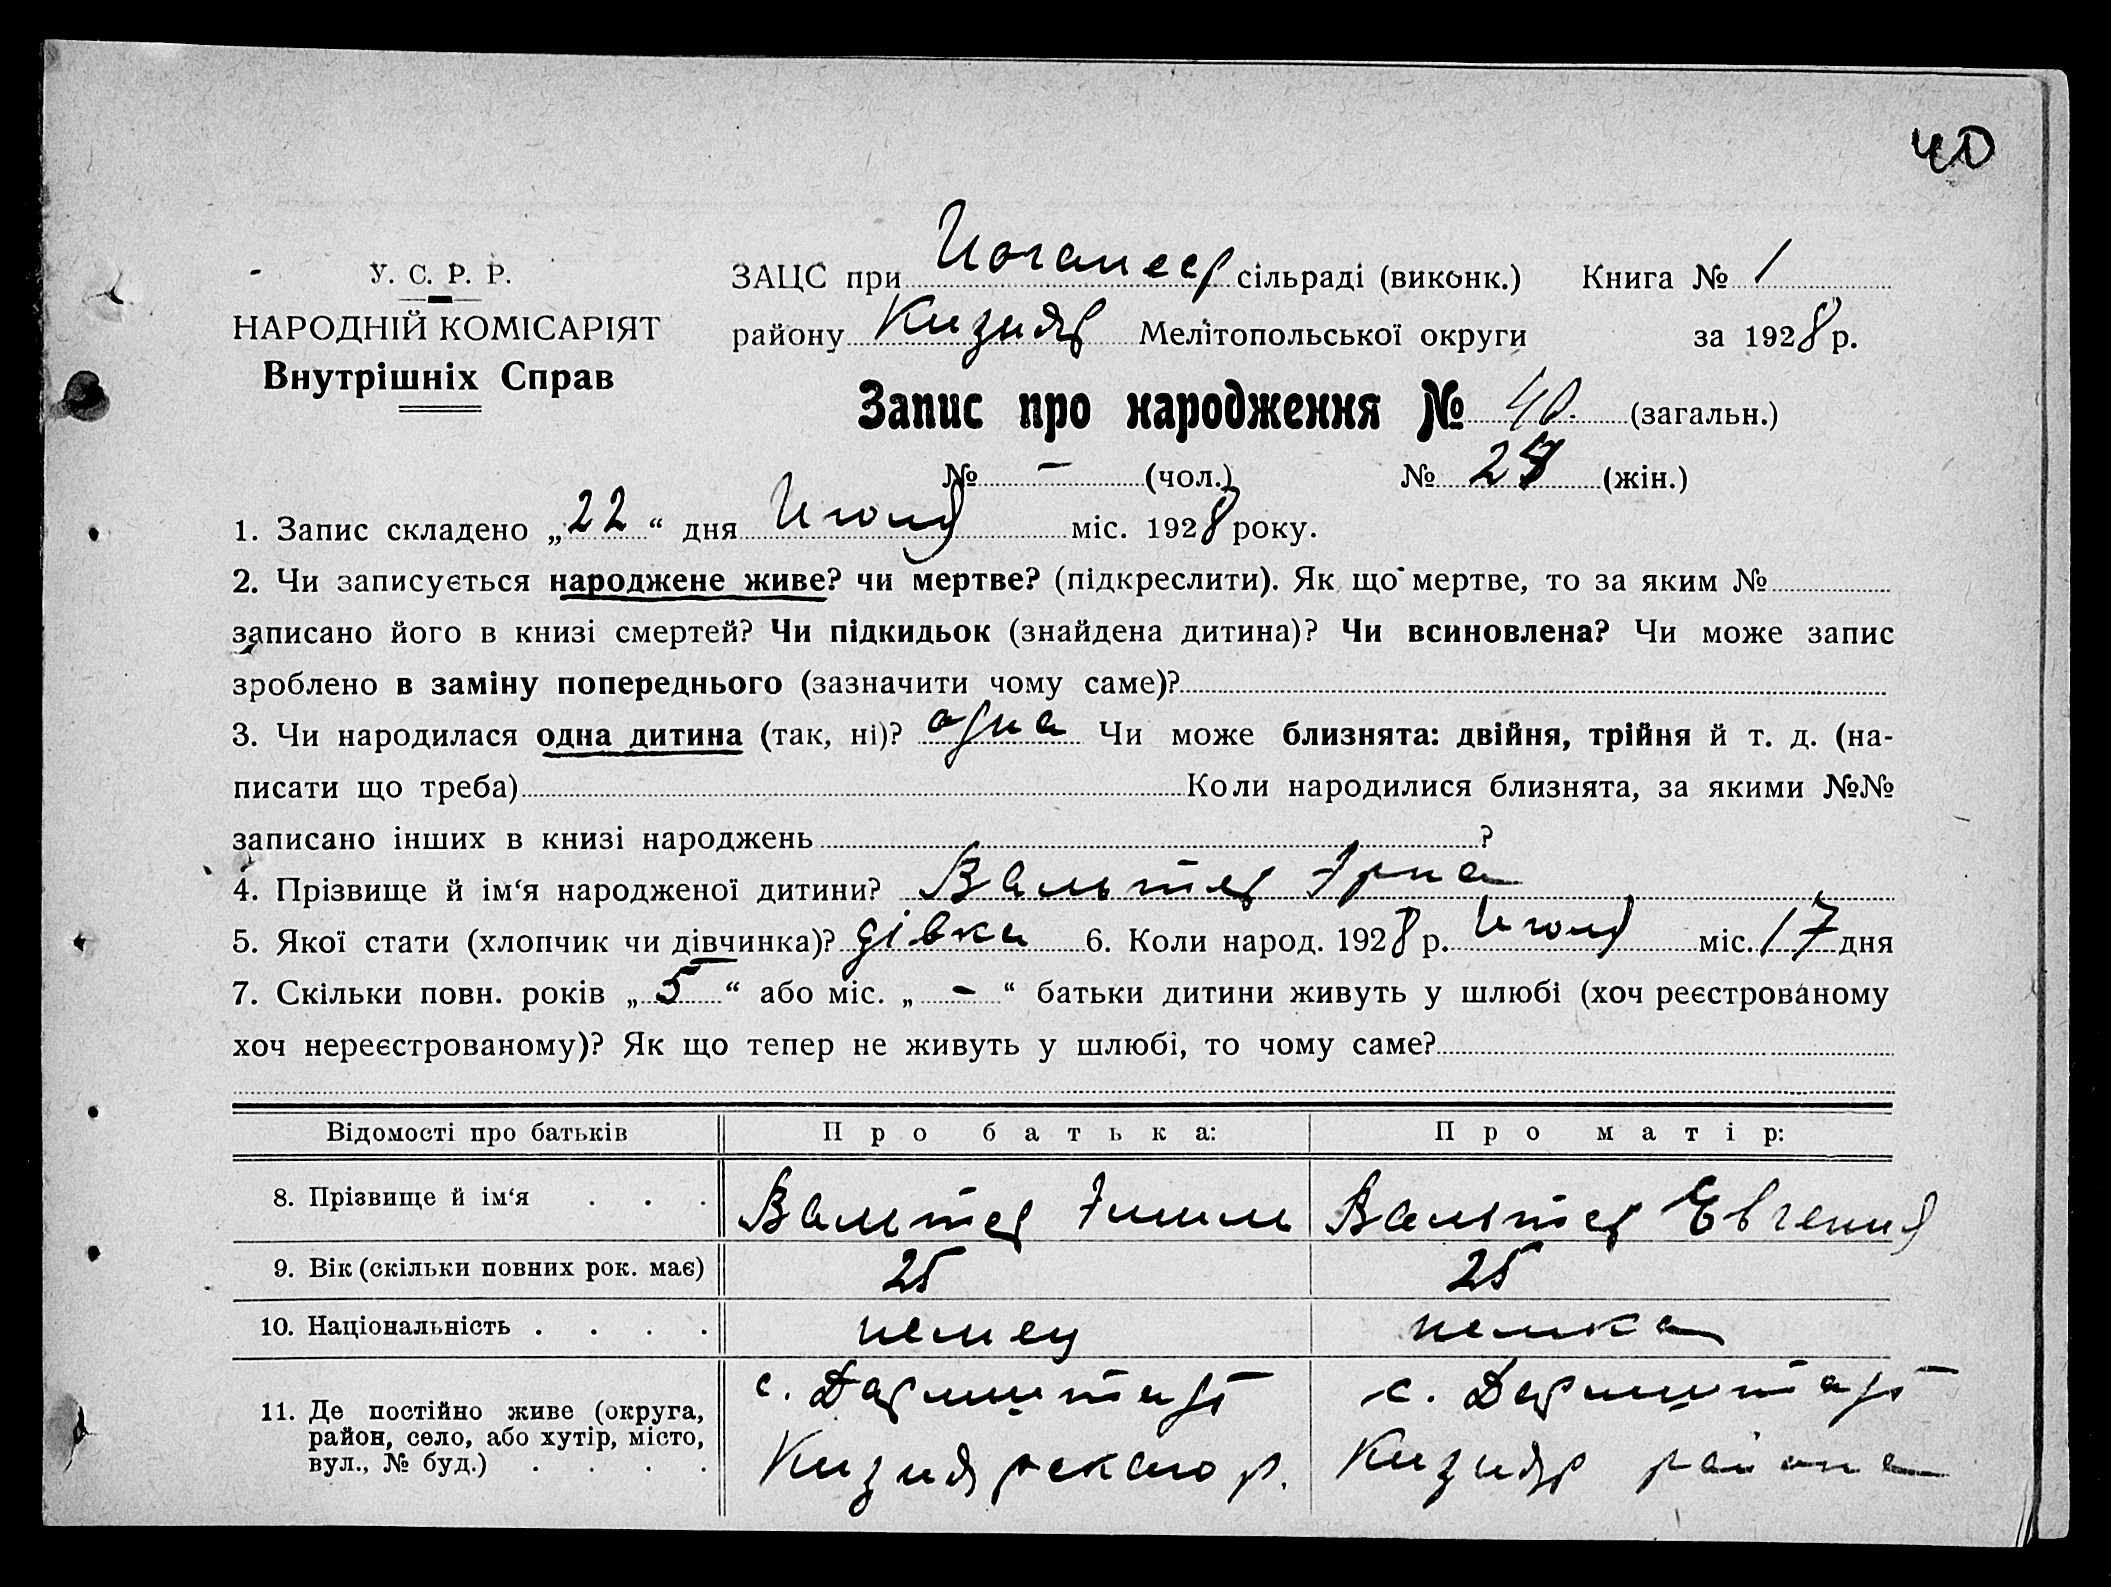 40
У. С. Р. Р.
НАРОДНІЙ КОМІСАРІЯТ
Внутрішніх Справ
ЗАЦС при Иоганеср сільраді (виконк.) Книга № 1
району Кизияр Мелітопольської округи за 1928 р.
Запис про народження № 40 (загальн.)
№ – (чол.) № 24 (жін.)
1. Запис складено „22“ дня Июля міс. 1928 року.
2. Чи записується народжене живе? чи мертве? (підкреслити). Як що мертве, то за яким №
записано його в книзі смертей? Чи підкидьок (знайдена дитина)? Чи всиновлена? Чи може запис
зроблено в заміну попереднього (зазначити чому саме)?
3. Чи народилася одна дитина (так, ні)? одна Чи може близнята: двійня, трійня й т. д. (на-
писати що треба) Коли народилися близнята, за якими №№
записано інших в книзі народжень ?
4. Прізвище й ім‘я народженої дитини? Вальтер Эрна
5. Якої стати (хлопчик чи дівчинка)? дівка 6. Коли народ. 1928 р. Июля міс. 17 дня
7. Скільки повн. років „5“ або міс. „-“ батьки дитини живуть у шлюбі (хоч реєстрованому
хоч нереєстрованому)? Як що тепер не живуть у шлюбі, то чому саме?
Відомості про батьків Про батька: Про матір:
8. Прізвище й ім‘я . . . Вальтер Эмиль Вальтер Евгения
9. Вік (скільки повних рок. має) 25 25
10. Національність . . . . немец немка
11. Де постійно живе (округа, с. Дармштадт с. Дармштадт
район, село, або хутір, місто,
вул., № буд.) . . . . Кизиярского р. Кизияр района